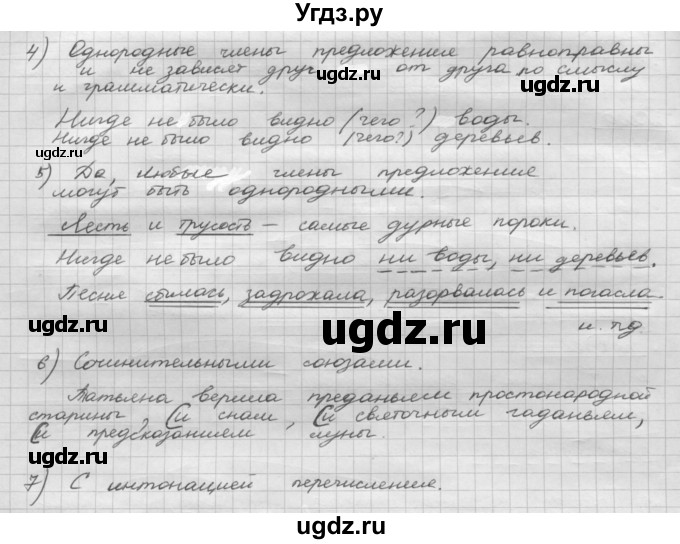 Угдз.ру
4) Однородные члены предложения равноправны
и не зависят друг от друга по смыслу
и грамматически.
Нигде не было видно (чего?) воды.
Нигде не было видно (чего?) деревьев.
5) Да, любые члены предложения
могут быть однородными.
Лесть и трусость – самые дурные пороки.
Нигде не было видно ни воды, ни деревьев.
Песня сбилась, задрожала, разорвалась и погасла.
и. пд
6) Сочинительными союзами.
Татьяна верила преданьям простонародной
старины, и снам, и святочным гаданьям,
и предсказаниям луны.
7) С интонацией перечисления.
ugdz.ru
ugdz.ru
ugdz.ru
ugdz.ru
ugdz.ru
ugdz.ru
ugdz.ru
ugdz.ru
ugdz.ru
ugdz.ru
ugdz.ru
ugdz.ru